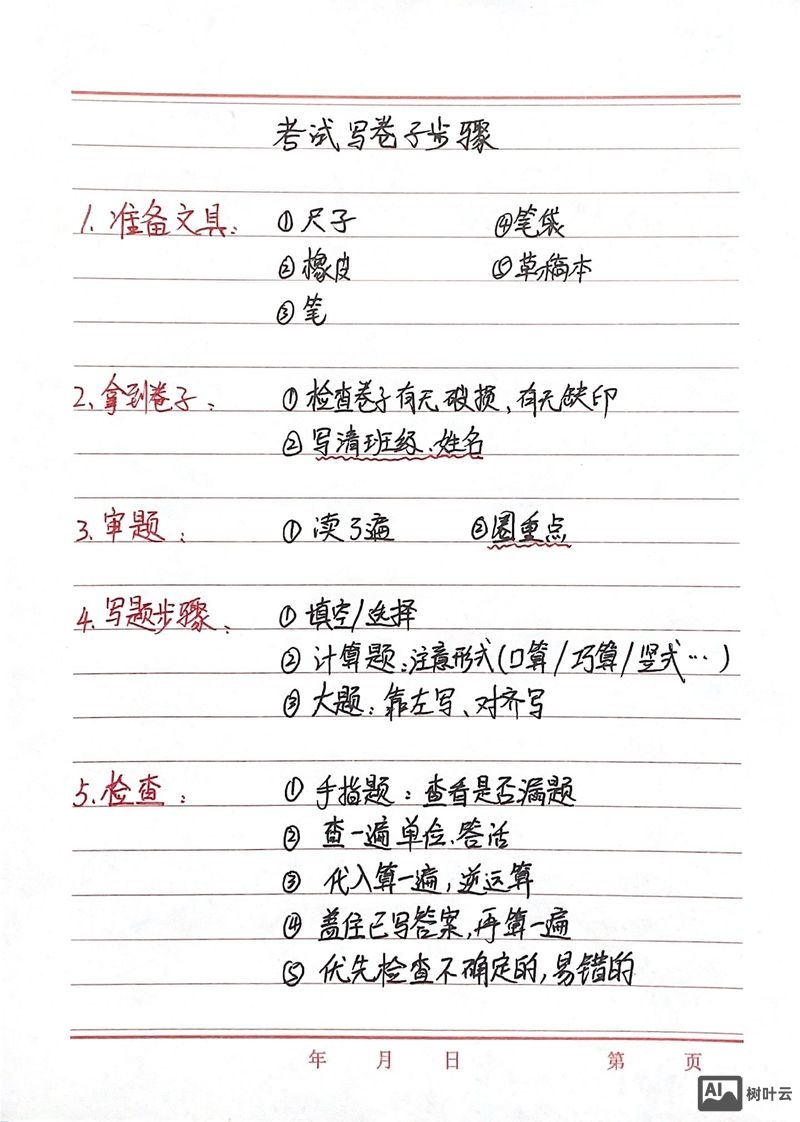 考试写卷子步骤
1. 准备文具: ① 尺子 ④ 笔袋
② 橡皮 ⑤ 草稿本
③ 笔
2. 拿到卷子: ① 检查卷子有无破损、有无缺印
② 写清班级.姓名
3. 审题: ① 读3遍 ② 圈重点
4. 写题步骤: ① 填空/选择
② 计算题:注意形式(口算/巧算/竖式…)
③ 大题:靠左写、对齐写
5. 检查: ① 手指题:查看是否漏题
② 查一遍单位.答话
③ 代入算一遍,逆运算
④ 盖住已写答案,再算一遍
⑤ 优先检查不确定的,易错的
年 月 日 第 页
AI 树叶云